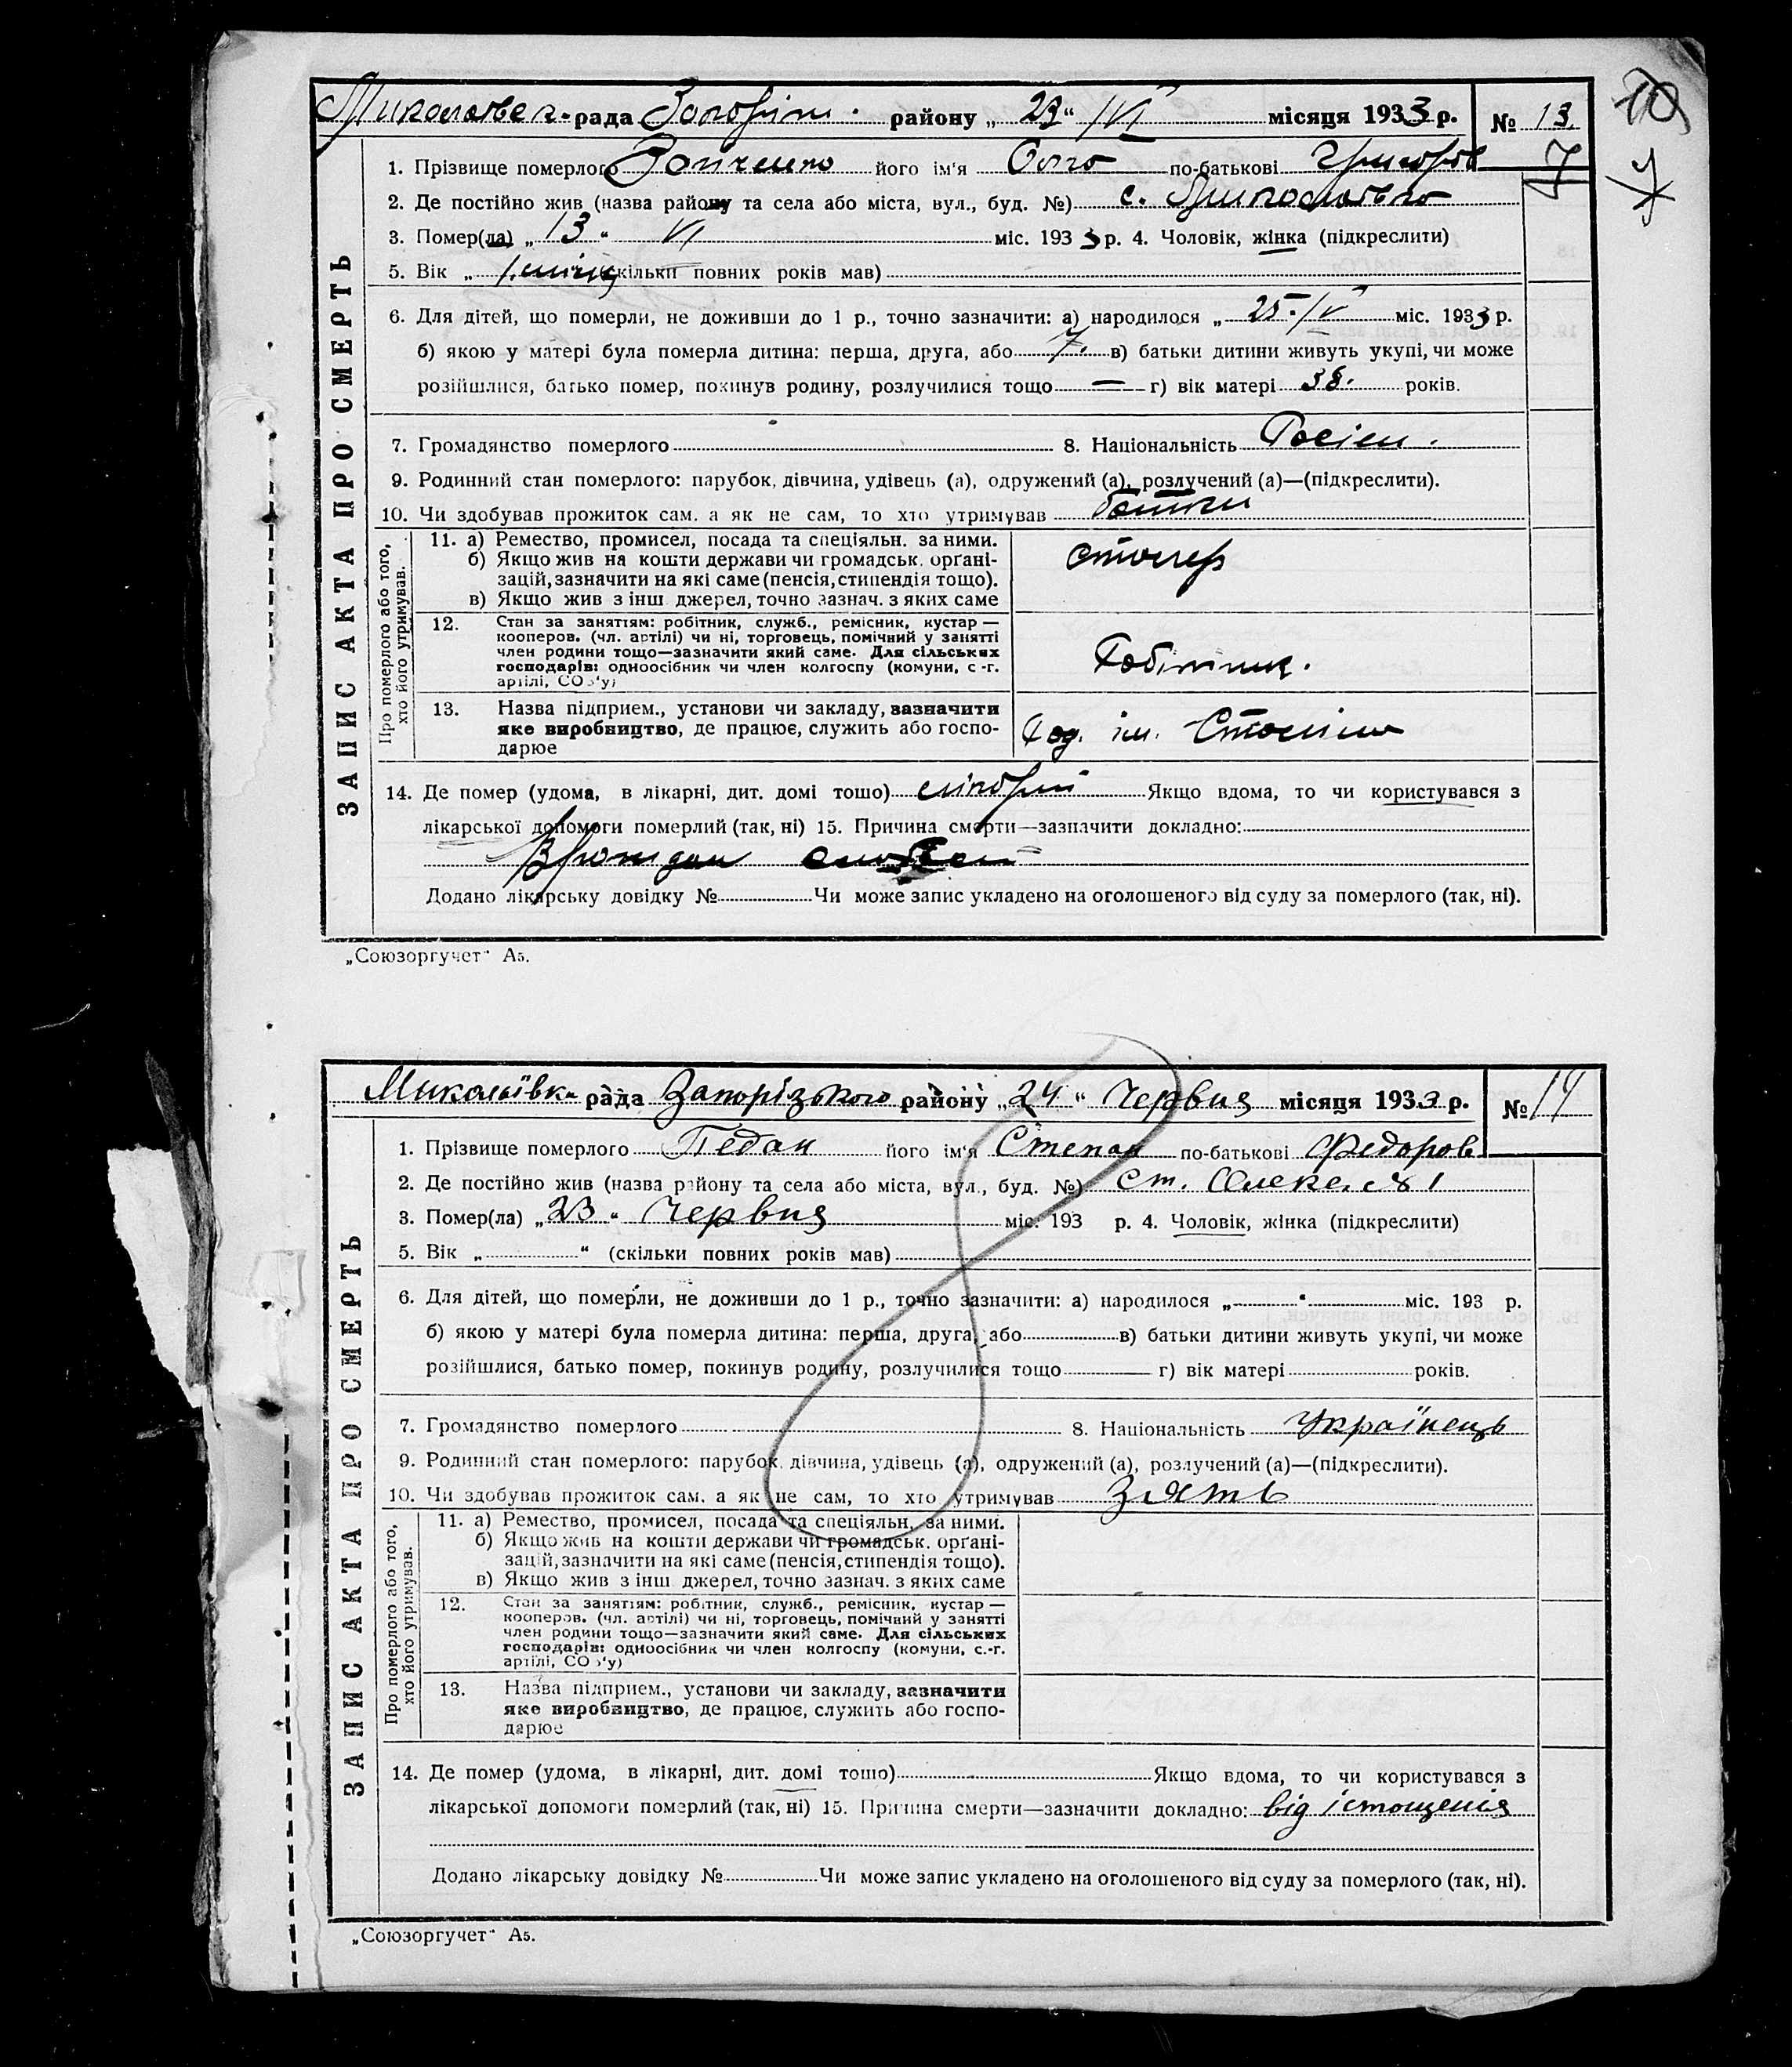 рада района „ 23 “ VI місяця 1933 р. № 13
7
ЗАПИС АКТА ПРО СМЕРТЬ
1. Прізвище померлого його ім'я по-батькові Григоров
2. Де постійно жив (назва району та села або міста, вул., буд. №) с.
3. Помер(ла) „ 13 “ VI міс. 1933 р. 4. Чоловік, жінка (підкреслити)
5. Вік „ (скільки повних років мав)
6. Для дітей, що померли, не доживши до 1 р., точно зазначити: а) народилося „ 25. IV міс. 1933 р.
б) якою у матері була померла дитина: перша, друга, або 7. в) батьки дитини живуть укупі, чи може
розійшлися, батько помер, покинув родину, розлучилися тощо — г) вік матері 38. років.
7. Громадянство померлого 8. Національність Росіян.
9. Родинний стан померлого: парубок, дівчина, удівець (а), одружений (а), розлучений (а)—(підкреслити).
10. Чи здобував прожиток сам, а як не сам, то хто утримував батьки
Про померлого або того, хто його утримував.
11. а) Ремество, промисел, посада та спеціяльн. за ними. столяр
б) Якщо жив на кошти держави чи громадськ. органі-
зацій, зазначити на які саме (пенсія, стипендія тощо).
в) Якщо жив з інш джерел, точно зазнач. з яких саме
12. Стан за заняттям: робітник, служб., ремісник, кустар —
кооперов. (чл. артілі) чи ні, торговець, помічний у занятті
член родини тощо—зазначити який саме. Для сільських Робітник.
господарів: одноосібник чи член колгоспу (комуни, с.-г.
артілі, СОЗ'у)
13. Назва підприєм., установи чи закладу, зазначити
яке виробництво, де працює, служить або госпо- Рад. ім. Сталіна
дарює
14. Де помер (удома, в лікарні, дит. домі тошо) Якщо вдома, то чи користувався з
лікарської допомоги померлий (так, ні) 15. Причина смерти—зазначити докладно:
Врождан
Додано лікарську довідку № Чи може запис укладено на оголошеного від суду за померлого (так, ні).
„Союзоргучет“ А5.
Миколаївка рада Запорізького району „ 24 “ Червня місяця 1933 р. № 14
ЗАПИС АКТА ПРО СМЕРТЬ
1. Прізвище померлого Педан його ім'я Степан по-батькові Федоров
2. Де постійно жив (назва району та села або міста, вул., буд. №) ст. № 1
3. Помер(ла) „ 23 “ Червня міс. 193 р. 4. Чоловік, жінка (підкреслити)
5. Вік „ “ (скільки повних років мав)
6. Для дітей, що померли, не доживши до 1 р., точно зазначити: а) народилося „ “ міс. 193 р.
б) якою у матері була померла дитина: перша, друга, або в) батьки дитини живуть укупі, чи може
розійшлися, батько помер, покинув родину, розлучилися тощо г) вік матері років.
7. Громадянство померлого 8. Національність Українець
9. Родинний стан померлого: парубок, дівчина, удівець (а), одружений (а), розлучений (а)—(підкреслити).
10. Чи здобував прожиток сам, а як не сам, то хто утримував Зять
Про померлого або того, хто його утримував.
11. а) Ремество, промисел, посада та спеціяльн. за ними.
б) Якщо жив на кошти держави чи громадськ. органі-
зацій, зазначити на які саме (пенсія, стипендія тощо).
в) Якщо жив з інш джерел, точно зазнач. з яких саме
12. Стан за заняттям: робітник, служб., ремісник, кустар —
кооперов. (чл. артілі) чи ні, торговець, помічний у занятті
член родини тощо—зазначити який саме. Для сільських
господарів: одноосібник чи член колгоспу (комуни, с.-г.
артілі, СОЗ'у)
13. Назва підприєм., установи чи закладу, зазначити
яке виробництво, де працює, служить або госпо-
дарює
14. Де помер (удома, в лікарні, дит. домі тошо) Якщо вдома, то чи користувався з
лікарської допомоги померлий (так, ні) 15. Причина смерти—зазначити докладно: від істощенія
Додано лікарську довідку № Чи може запис укладено на оголошеного від суду за померлого (так, ні).
„Союзоргучет“ А5.